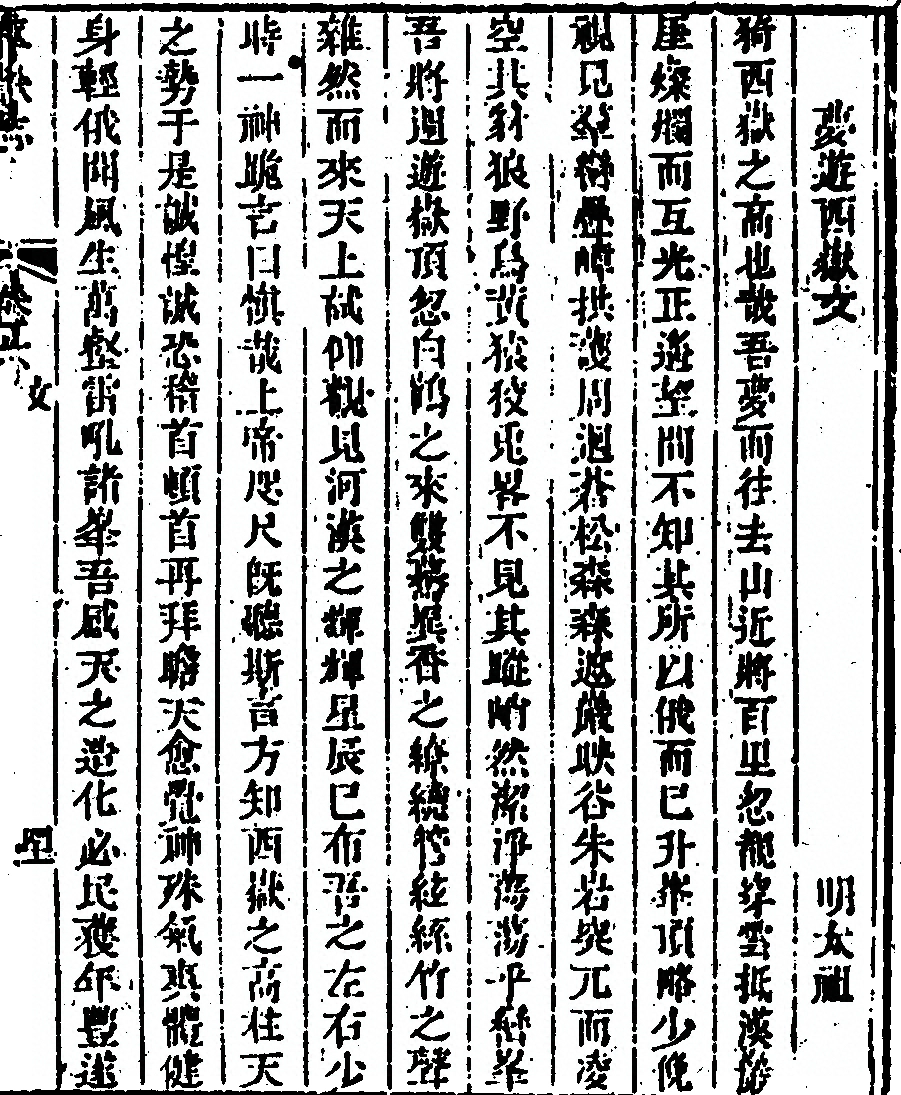 夢遊西嶽文 明太祖
猗西嶽之高也哉吾夢而往去山近將百里忽覩穿雲抵漢巖
崖燦爛而互光正遙望間不知其所以俄而已升峯頂略少俛
視見群巒疊嶂拱護周迴蒼松森森遮巖映谷朱岩突兀而凌
空其豺狼野鳥黃猿狡兎畧不見其蹤悄然潔淨蕩蕩乎巒峯
吾將週遊嶽頂忽白鶴之來雙鸞異香之繚繞管絃絲竹之聲
雜然而來天上試仰觀見河漢之輝輝星辰已布吾之左右少
時一神跪言曰慎哉上帝咫尺既聽斯言方知西嶽之高柱天
之勢于是誠惶誠恐稽首頓首再拜瞻天愈覺神殊氣爽體健
身輕俄聞風生萬壑雷吼諸峯吾感天之造化必民獲年豐遂
文